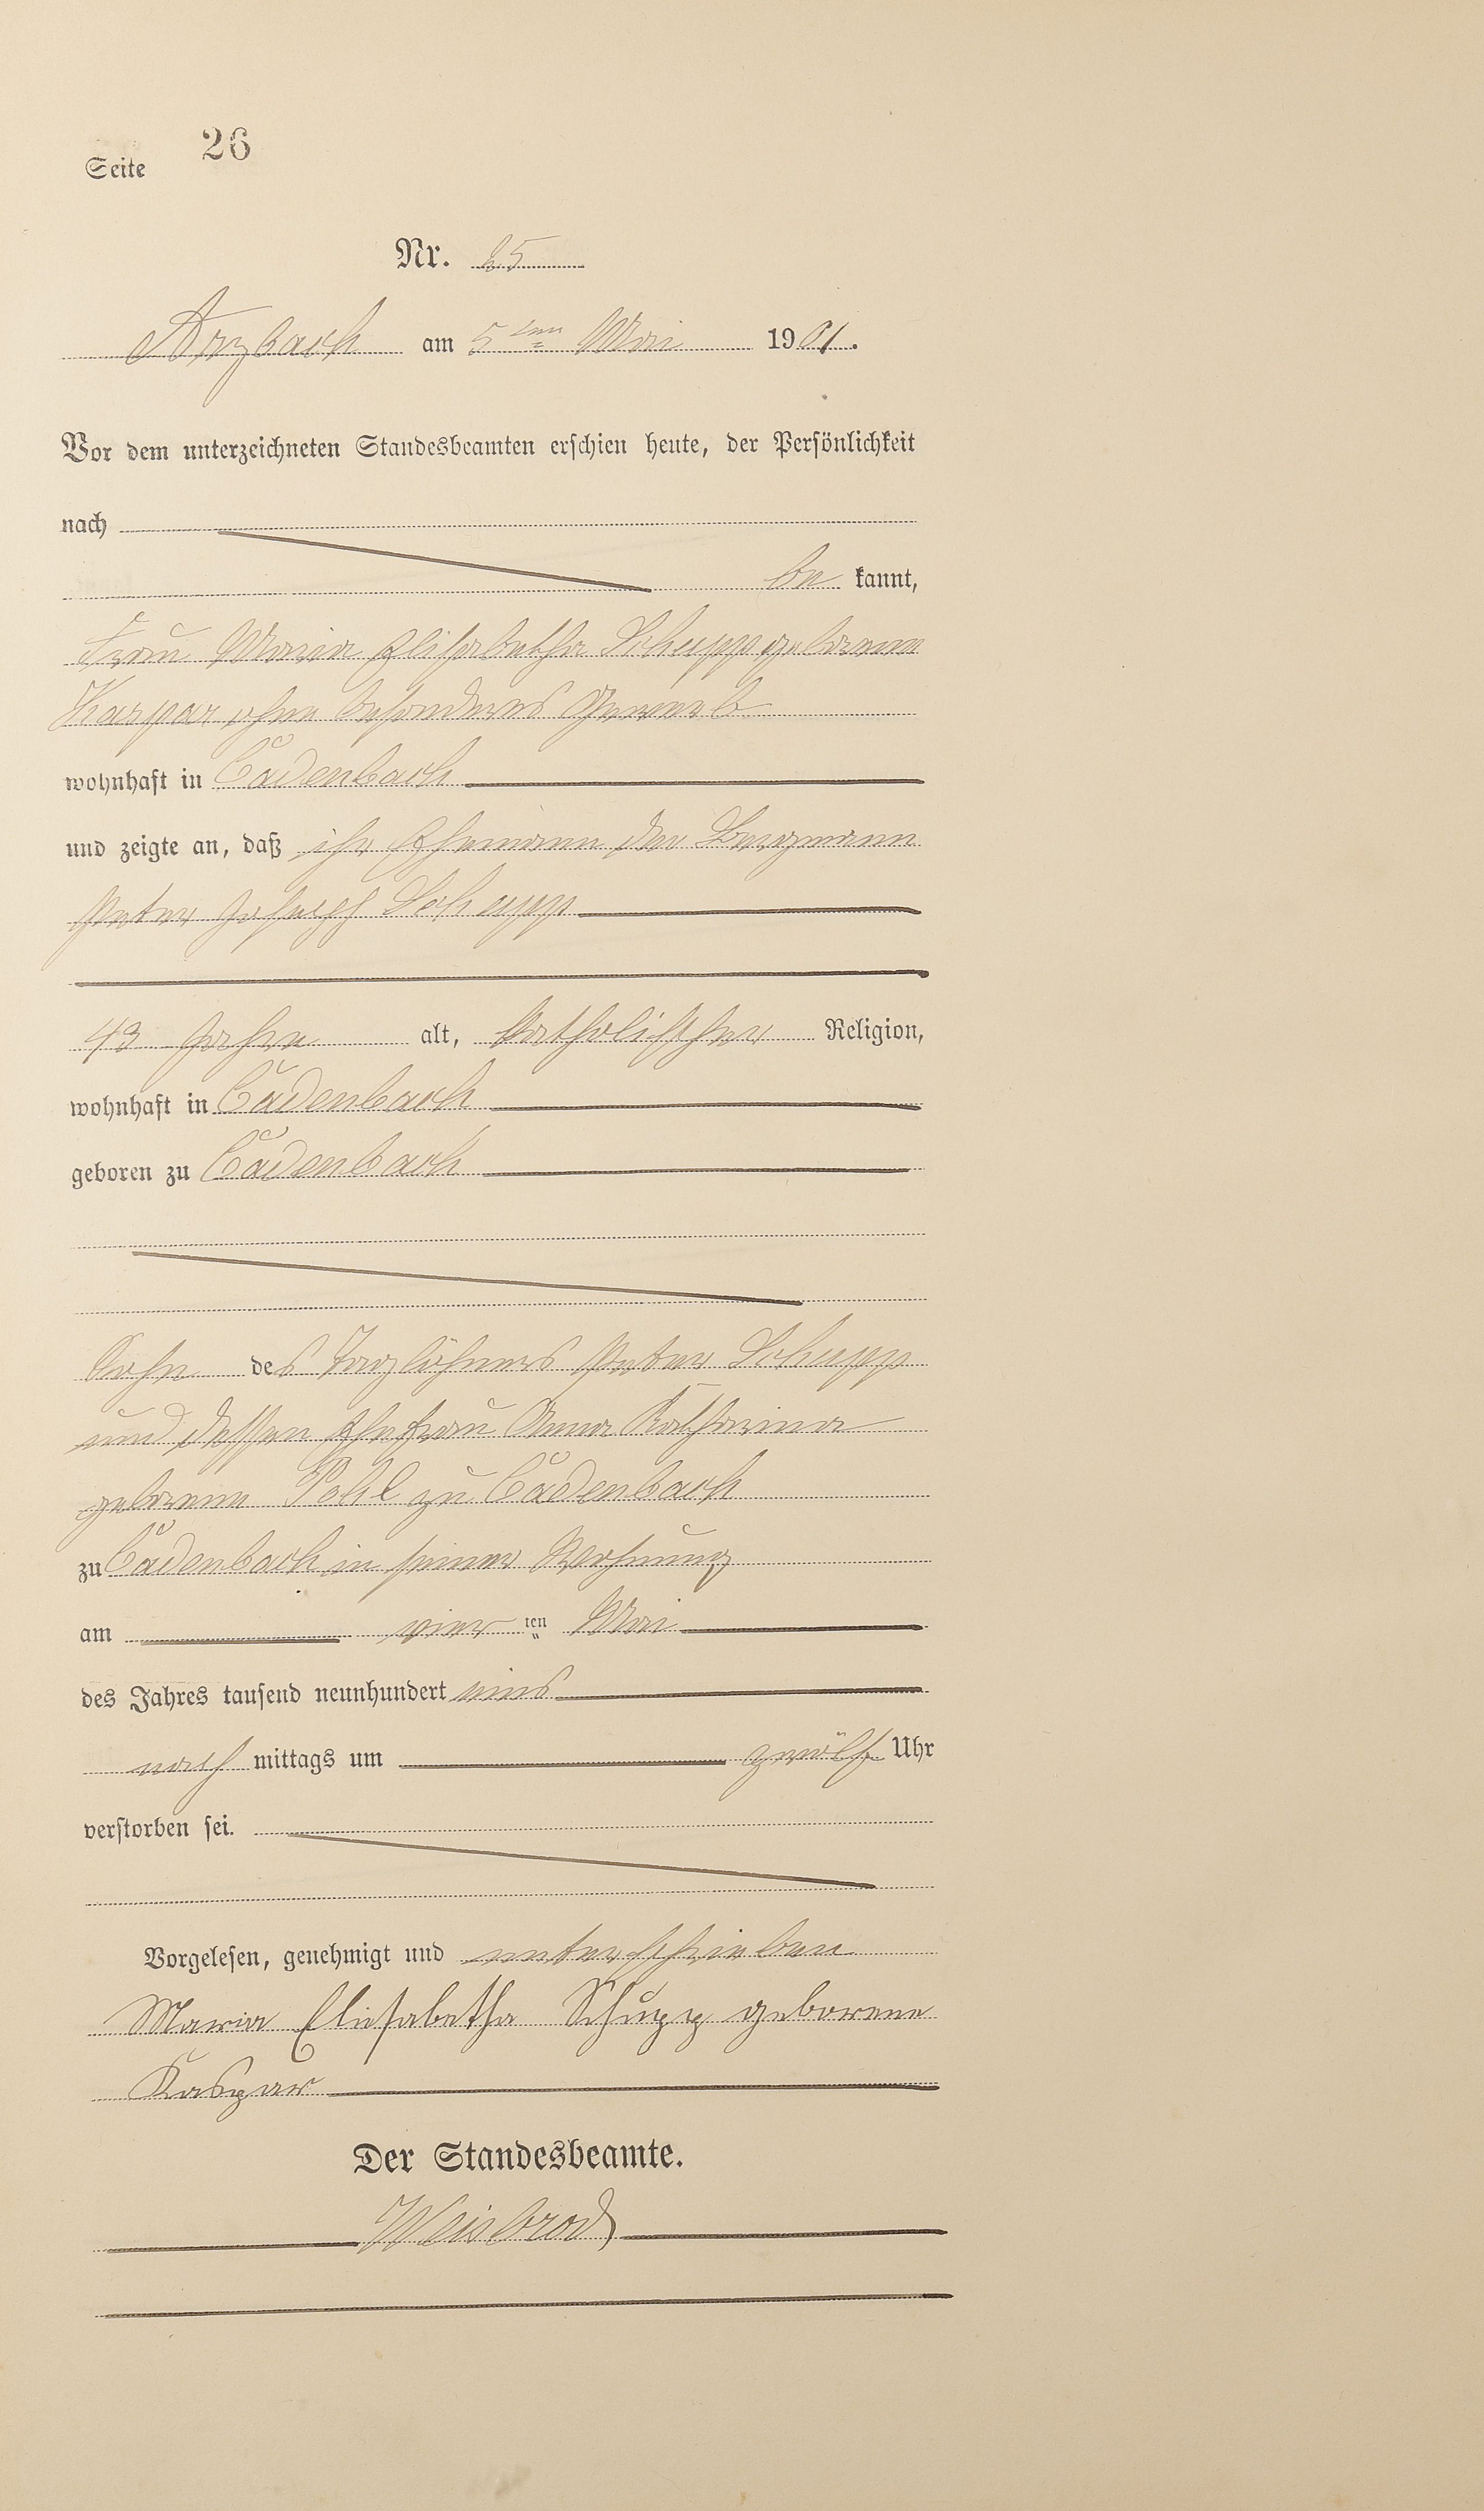 Seite 26
Nr. 25
Arzbach am 5ten Mai 1901.
Vor dem unterzeichneten Standesbeamten erschien heute, der Persönlichkeit
nach
be kannt,
Frau Maria Elisabetha Schupp geborene
Kaspar ohne besonderes Gewerb
wohnhaft in Cadenbach
und zeigte an, daß ihr Ehemann der Bergmann
Peter Joseph Schupp
43 Jahre alt, katholischer Religion,
wohnhaft in Cadenbach
geboren zu Cadenbach
Sohn des Taglöhners Peter Schupp
und dessen Ehefrau Anna Katharina
geborene Pohl zu Cadenbach
zu Cadenbach in seiner Wohnung
am vier ten Mai
des Jahres tausend neunhundert eins
nach mittags um zwölf Uhr
verstorben sei.
Vorgelesen, genehmigt und unterschrieben
Maria Eliesabetha Schupp geborene
Kaspar
Der Standesbeamte.
Weisbrod